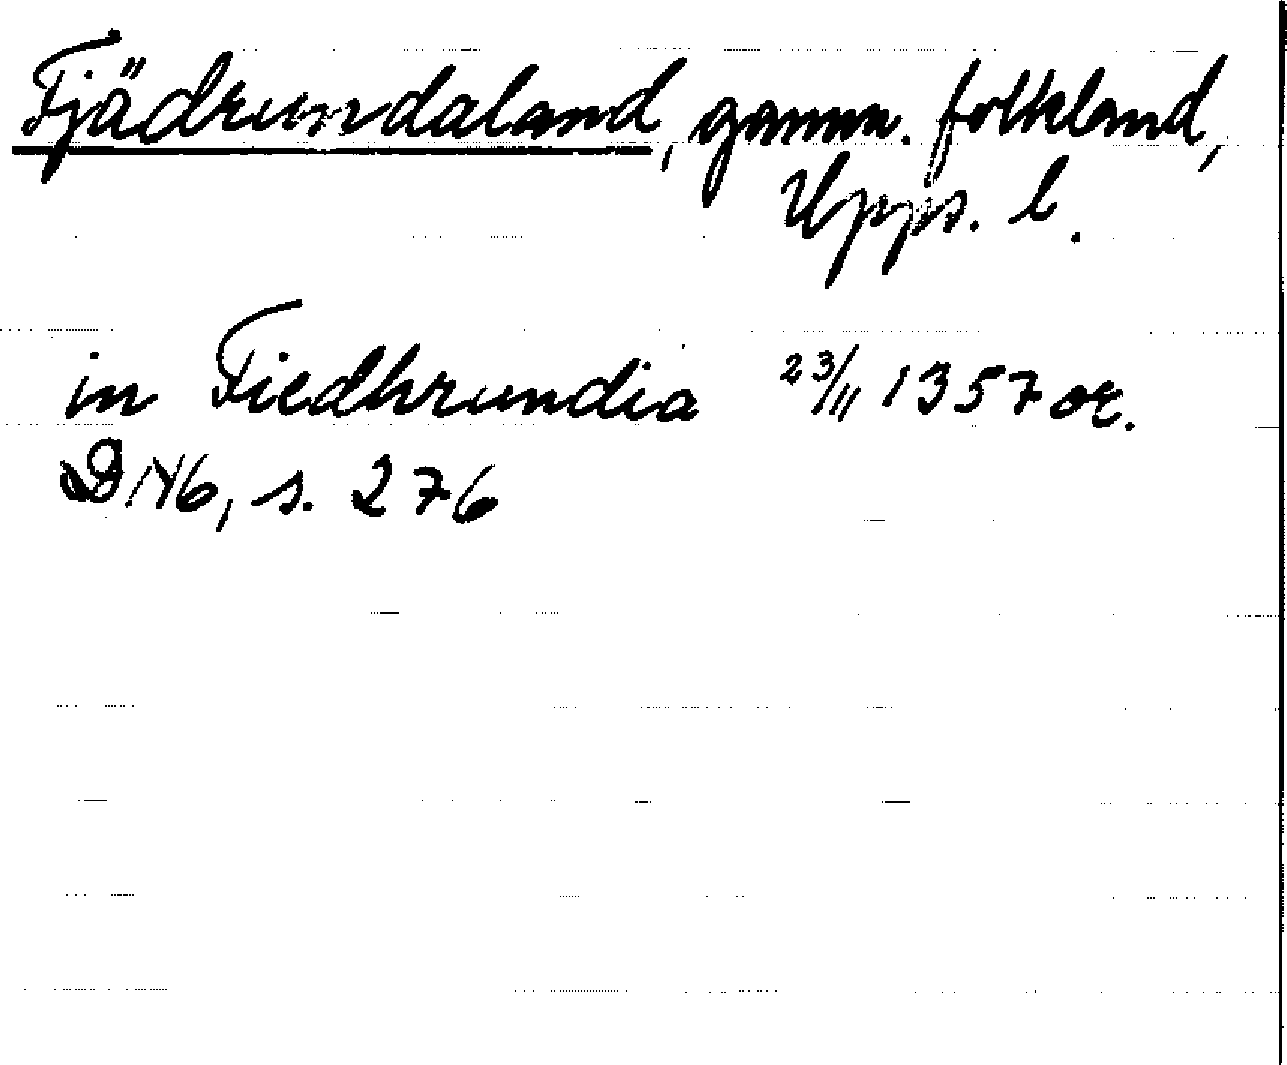 Fjädrundaland, gamm. folkland,
Upps. l.
in Fiedhrundia 23/11 1357 or.
DN6, s. 276